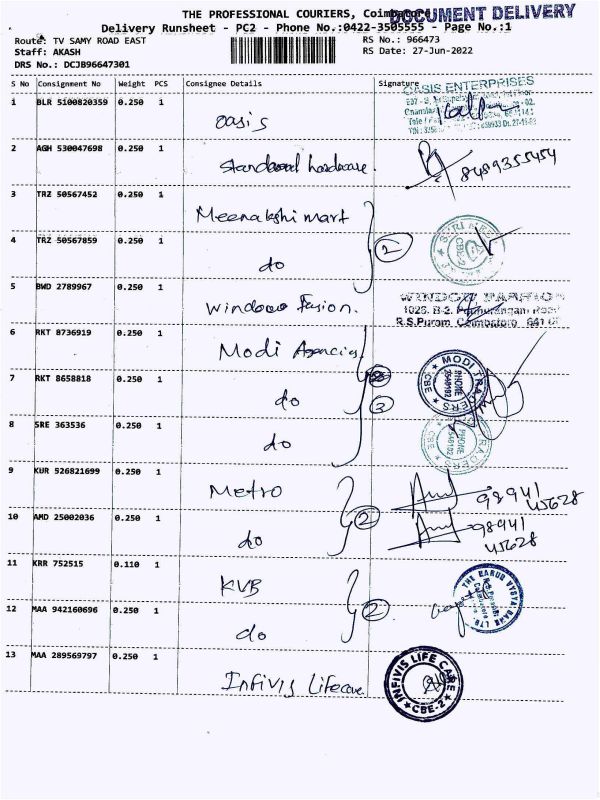 THE PROFESSIONAL COURIERS, Coimbatore
DOCUMENT DELIVERY
Delivery Runsheet - PC2 - Phone No.:0422-3505555 - Page No.:1
Route: TV SAMY ROAD EAST RS No.: 966473
Staff: AKASH RS Date: 27-Jun-2022
DRS No.: DCJB96647301
S No Consignment No Weight PCS Consignee Details Signature
1 BLR 5100820359 0.250 1 Oasis
OASIS ENTERPRISES
2 AGH 530047698 0.250 1 Standard hardware. 8489355454
3 TRZ 50567452 0.250 1 Meenakshi mart
4 TRZ 50567859 0.250 1 do 2
CBE-2
5 BWD 2789967 0.250 1 Window Fusion.
R.S.Puram Coimbatore
6 RKT 8736919 0.250 1 Modi Agencies
7 RKT 8658818 0.250 1 do 3
MODI TRADERS CBE PHONE
8 SRE 363536 0.250 1 do
PHONE CBE
9 KUR 526821699 0.250 1 Metro 98941 45628
10 AMD 25002036 0.250 1 do 2 98941 45628
11 KRR 752515 0.110 1 KVB
THE KARUR VYSYA BANK LTD.
12 MAA 942160696 0.250 1 do 2
13 MAA 289569797 0.250 1 Infivis Lifecare
INFIVIS LIFE CARE CBE-2